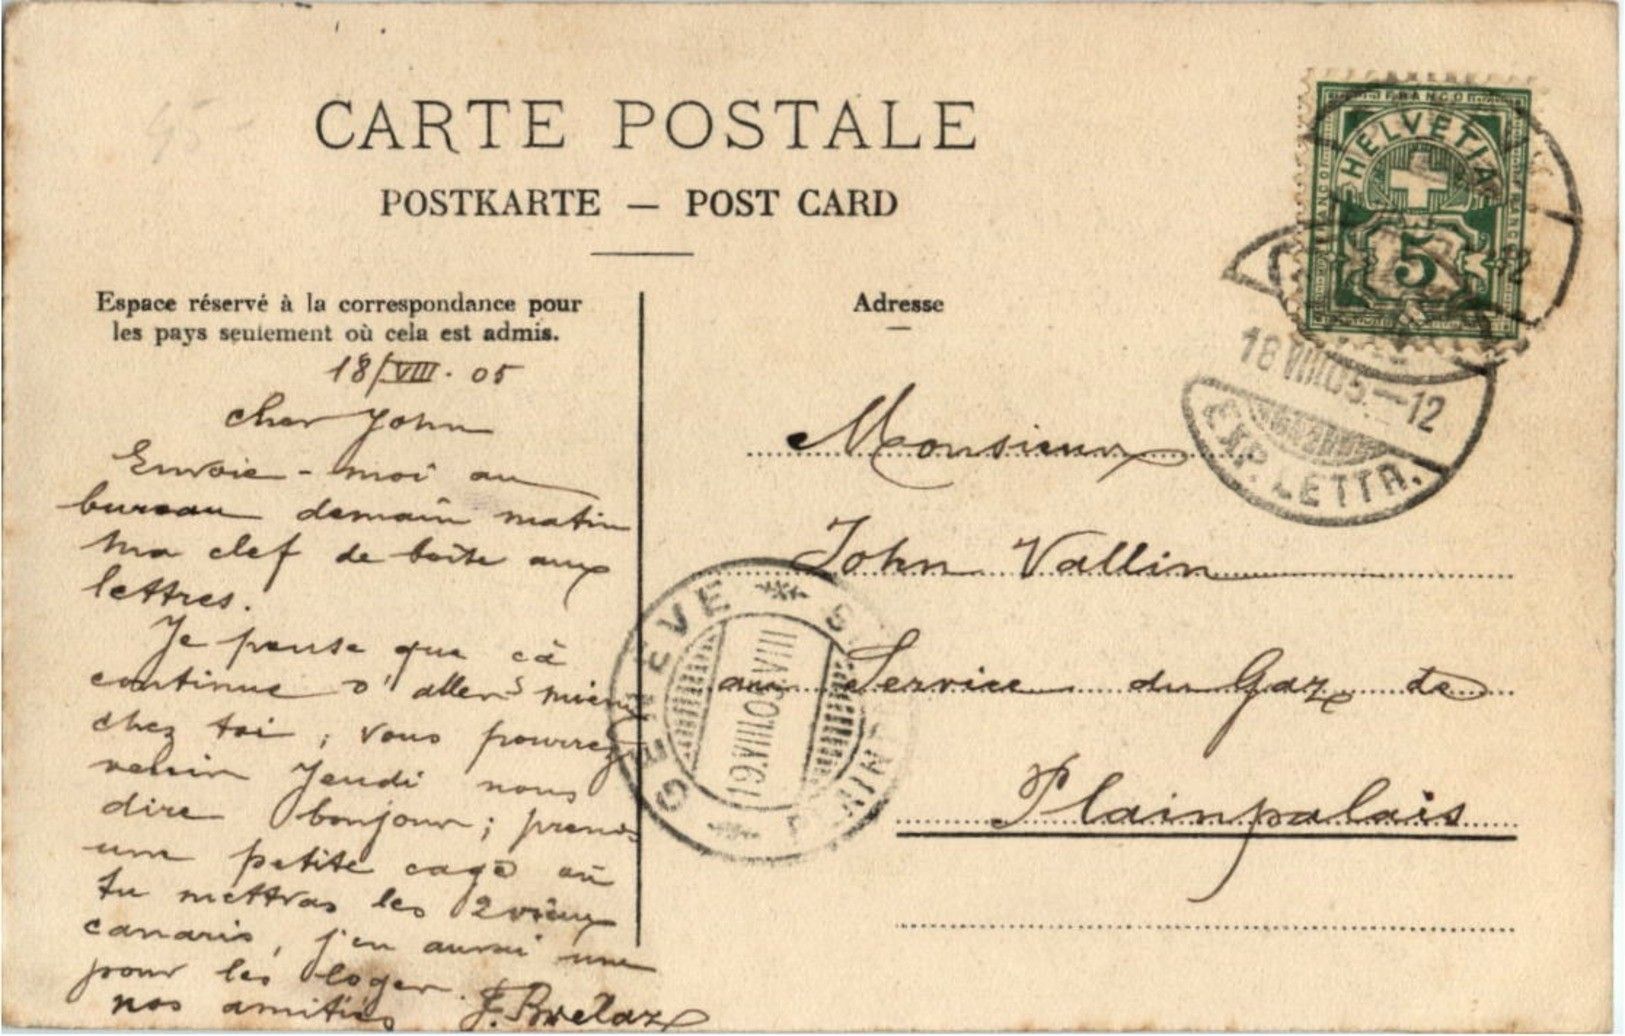 95-
CARTE POSTALE
POSTKARTE — POST CARD
Espace réservé à la correspondance pour
les pays seulement où cela est admis.
18/VIII. 05
cher John
Envoie-moi au
bureau demain matin
ma clef de boîte aux
lettres.
Je pense que cà
continue d'aller mieux
chez toi, vous pourrez
venir Jeudi nous
dire bonjour; prends
une petite cage où
tu mettras les 2 vieux
canaris, j'en aurai une
pour les loger.
nos amitiés F. Brélaz
Adresse
Monsieur
John Vallin
au Service du Gaz de
Plainpalais
FRANCO
HELVETIA
FRANCO
5
12
18 VIII 05.—12
EXP. LETTR.
GENÈVE
19.VIII.05.VIII